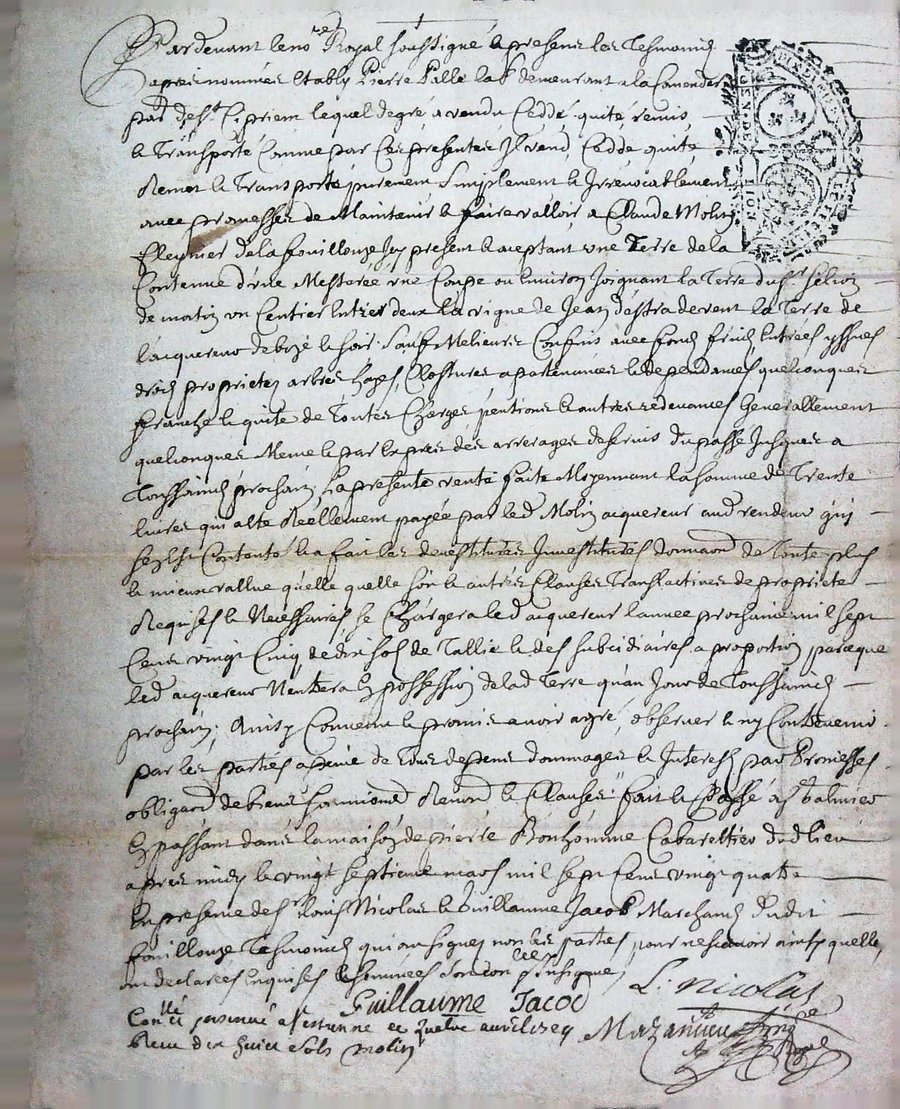 Pardevant le no.re Royal soussigné & presens les Tesmoins
apres nommés Estably Pierre Palle lab.r demeurant a la
par de s.t Ciprien lequel de gré a vendu Ceddé, quité, remis
& Transporté Comme par Ces presentes Il vend, Cedde, quite
Remet & Transporte purement Simplement & Irrevocablement
avec promesses de Maintenir & faire valloir a Claude Molin
de la fouillouze Icy present & aceptant une Terre de la
Contenue d'une Mesturée une Coupe ou Environ Joignant la Terre du s.r
de matin un Centier Entre deux la vigne de Jean destra de vent la Terre de
l'acquereur de bize & soir Sauf Melieurs Confins avec fond fruict Entrées yssues
droict proprietez arbres hayes, Clostures apartenances & dependances quelconques
franche & quite de Toutes Charges pentions & autres redevances Generallement
quelconques Meme & par Expres des arrerages desernis du passé Jusques a
Toussainct prochain. La presente vente faite Moyennant la somme de Trente
livres qui a Esté Reéllement payée par led. Molin acquereur aud. vendeur qui
s'en est Contenté & a fait les devestitures Investitures donnaon de Toute plus
& mieux vallue qu'elle quelle soit & autres Clauses Translactives de proprieté
Requises & Necessaires se Chargera led. acquereur l'année prochaine mil sept
Cens vingt Cinq de dix sols de Tallie & des subcidiaires a proportion parceque
led. acquereur N'entrera En possession de lad. Terre qu'au Jour de Toussainct
prochain; Ainsy Convenu & promis avoir agré, observer & ny Contrevenir
par les parties a peine de Tous depens dommages & Interestz par Promesses
obligaon de biens soumions Renon & Clauses fait & Passé a s.t Galmier
En passant dans la maison de pierre Bonhomme Cabarettier dud. lieu
apres midy le vingt septieme mars mil sept Cens vingt quatre
En presence de s.r Louis Nicolas & Guillaume Jacod Marchand dudit
fouillouze Tesmoins qui ont signez non les parties pour ne scavoir ainsy qu'elles
ont declarees Enquises & sommées
L. Nicolas
Guillaume Jacod
Con.llé a s.t Estienne ce
Mazanieu
Receu dix huict sols molin